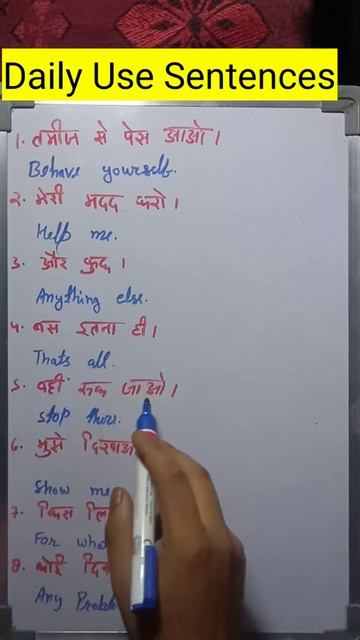 Daily Use Sentences
1. तमीज से पेस आओ।
Behave yourself.
2. मेरी मदद करो।
Help me.
3. और कुछ।
Anything else.
4. बस इतना ही।
Thats all.
5. वही रुक जाओ।
Stop there.
6. मुझे
Show me
7. किस
For what
8. कोई
Any